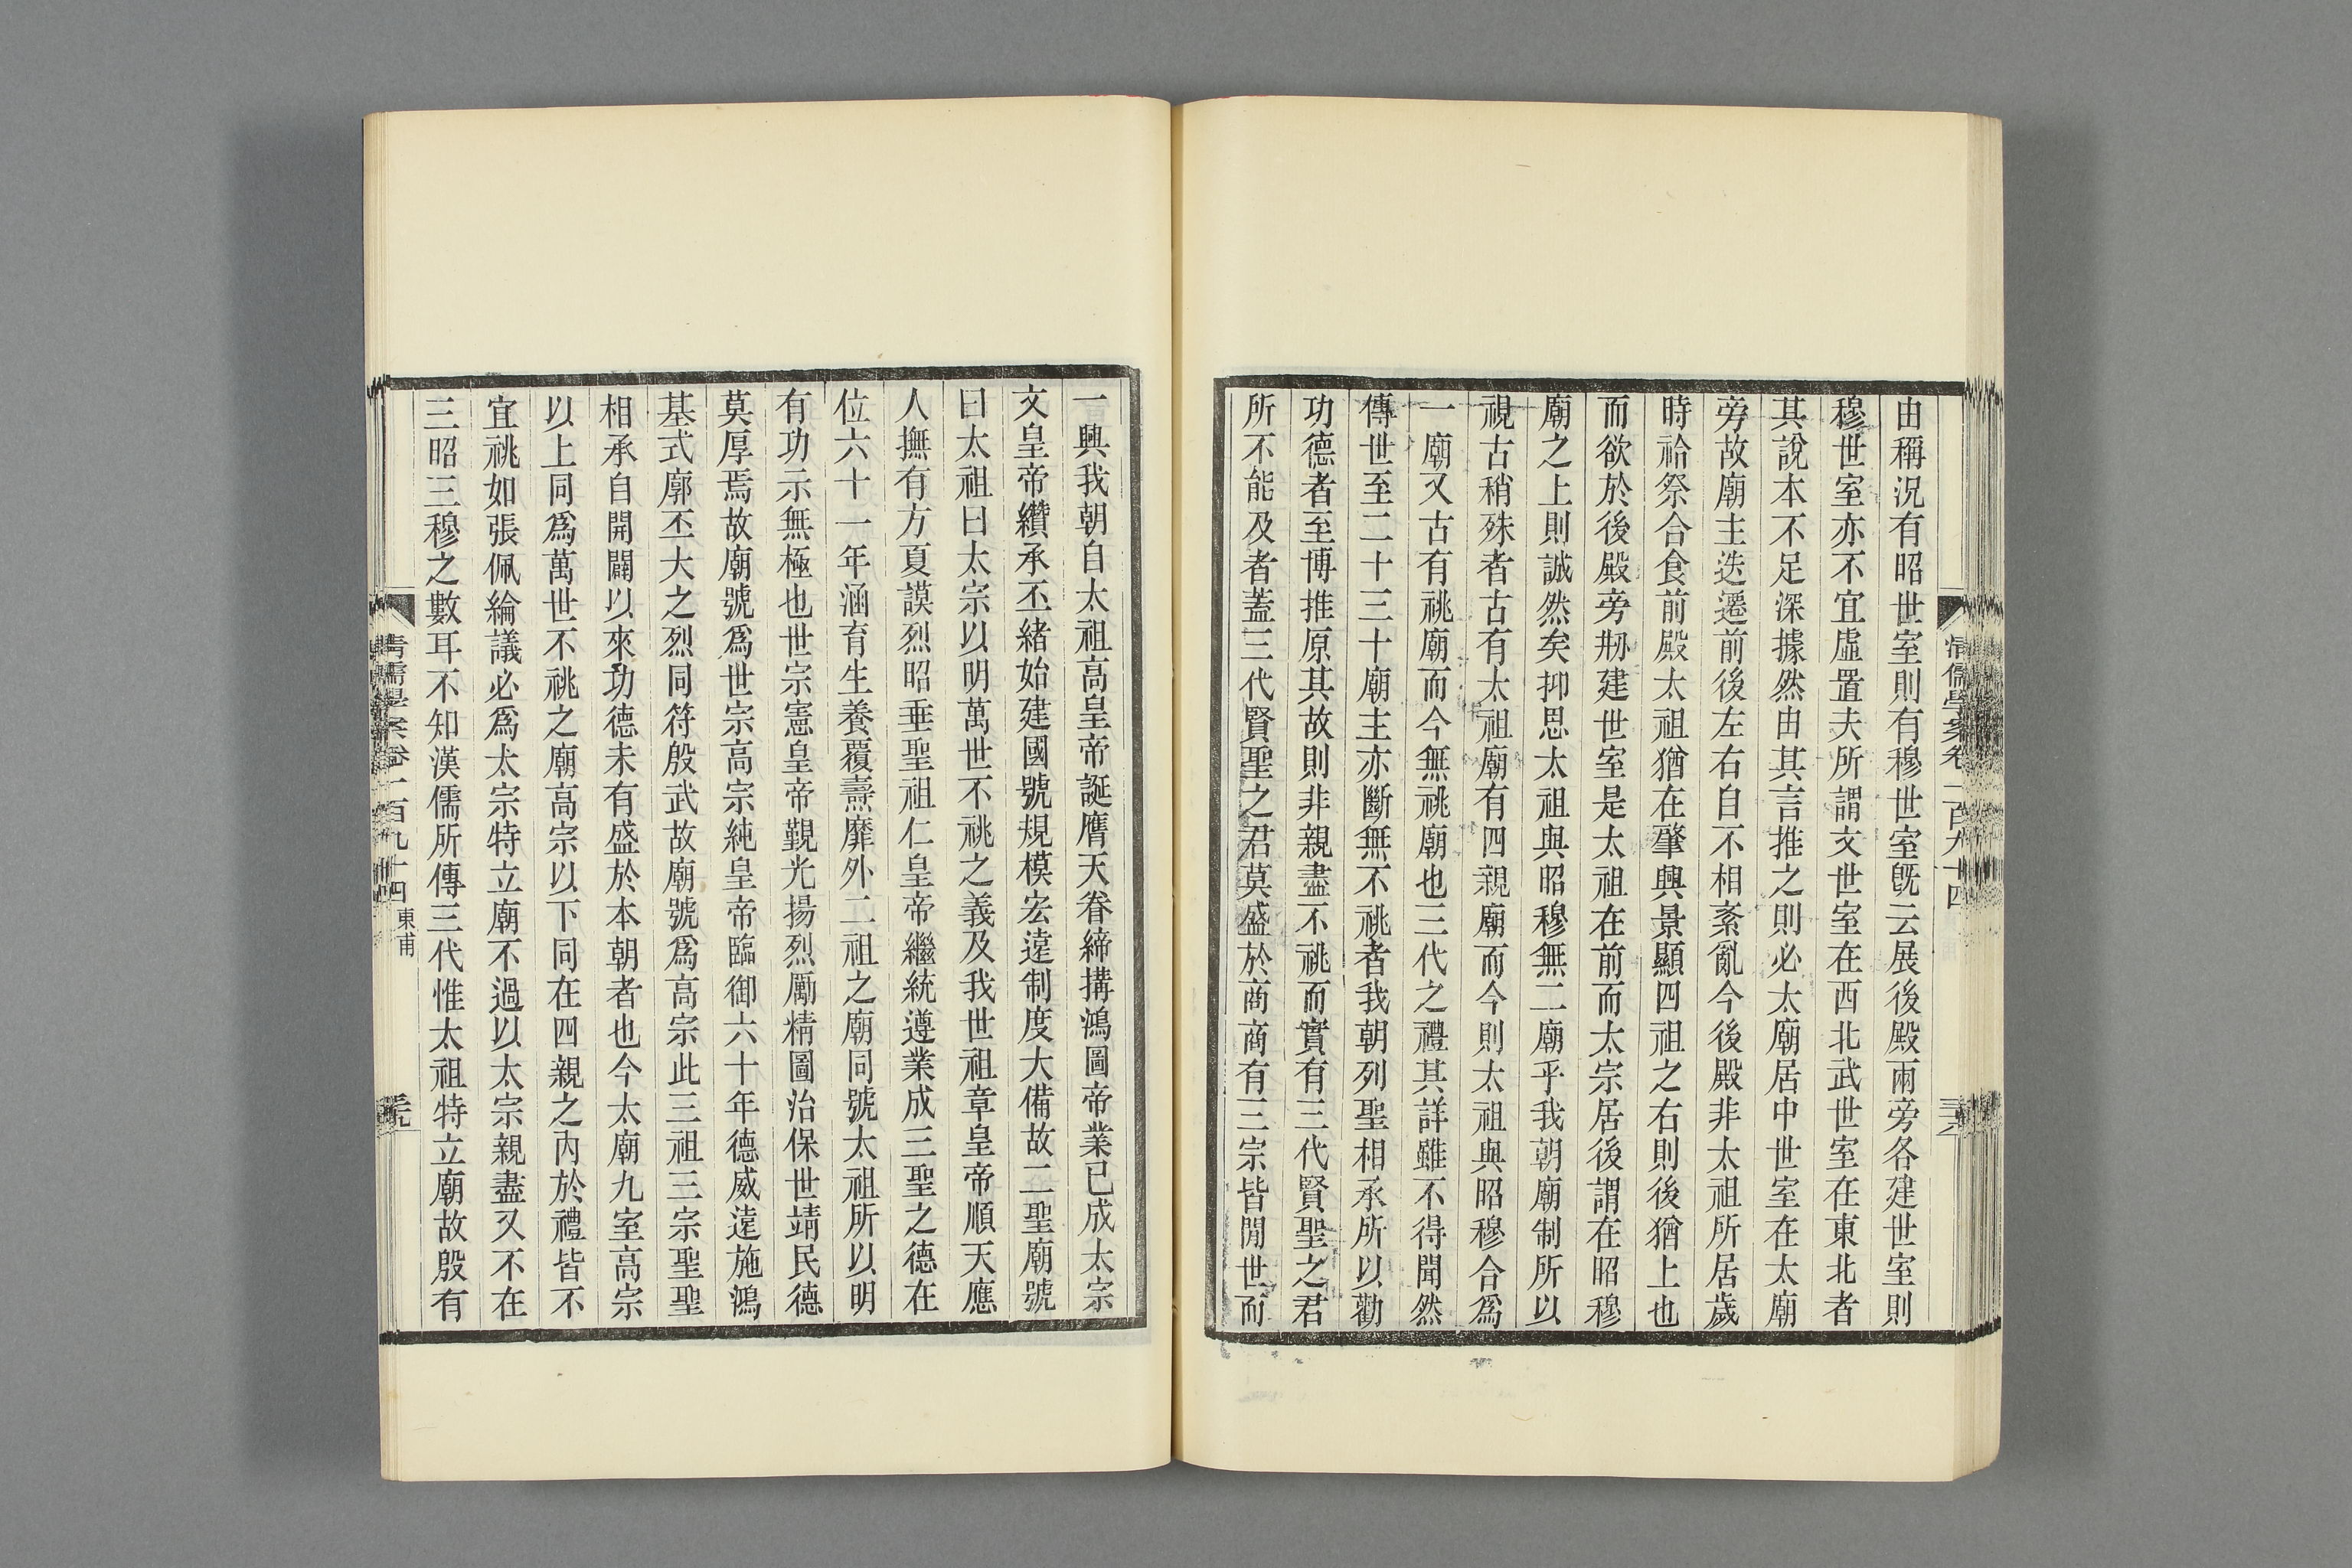 由稱況有昭世室則有穆世室旣云展後殿兩旁各建世室則
穆世室亦不宜虛置夫所謂文世室在西北武世室在東北者
其說本不足深據然由其言推之則必太廟居中世室在太廟
旁故廟主迭遷前後左右自不相紊亂今後殿非太祖所居歲
時祫祭合食前殿太祖猶在肇興景顯四祖之右則後猶上也
而欲於後殿旁刱建世室是太祖在前而太宗居後謂在昭穆
廟之上則誠然矣抑思太祖與昭穆無二廟乎我朝廟制所以
視古稍殊者古有太祖廟有四親廟而今則太祖與昭穆合爲
一廟又古有祧廟而今無祧廟也三代之禮其詳雖不得聞然
傳世至二十三十廟主亦斷無不祧者我朝列聖相承所以勸
功德者至博推原其故則非親盡不祧而實有三代賢聖之君
所不能及者蓋三代賢聖之君莫盛於商商有三宗皆閒世而
清儒學案卷一百九十四
一興我朝自太祖高皇帝誕膺天眷締搆鴻圖帝業已成太宗
文皇帝纘承丕緒始建國號規模宏遠制度大備故二聖廟號
曰太祖曰太宗以明萬世不祧之義及我世祖章皇帝順天應
人撫有方夏謨烈昭垂聖祖仁皇帝繼統遵業成三聖之德在
位六十一年涵育生養覆燾靡外二祖之廟同號太祖所以明
有功示無極也世宗憲皇帝覲光揚烈勵精圖治保世靖民德
莫厚焉故廟號爲世宗高宗純皇帝臨御六十年德威遠施鴻
基式廓丕大之烈同符殷武故廟號爲高宗此三祖三宗聖聖
相承自開闢以來功德未有盛於本朝者也今太廟九室高宗
以上同爲萬世不祧之廟高宗以下同在四親之內於禮皆不
宜祧如張佩綸議必爲太宗特立廟不過以太宗親盡又不在
三昭三穆之數耳不知漢儒所傳三代惟太祖特立廟故殷有
清儒學案卷一百九十四
東甫